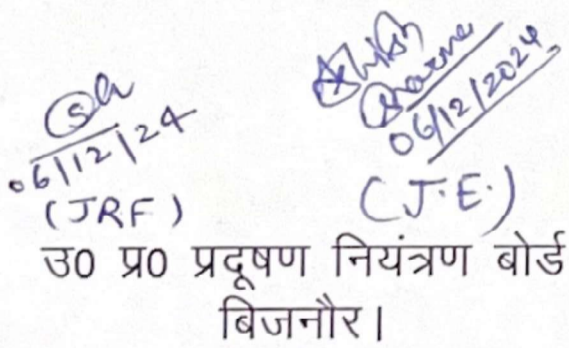 06/12/24
(JRF)
Ashish
Sharma
06/12/2024
(J.E.)
उ0 प्र0 प्रदूषण नियंत्रण बोर्ड
बिजनौर।